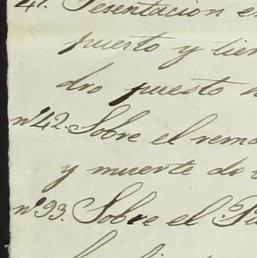 41. Presentacion en
puerto y tier
dro puesto
nº 42. Sobre el remo
y muerte de
nº 93. Sobre el